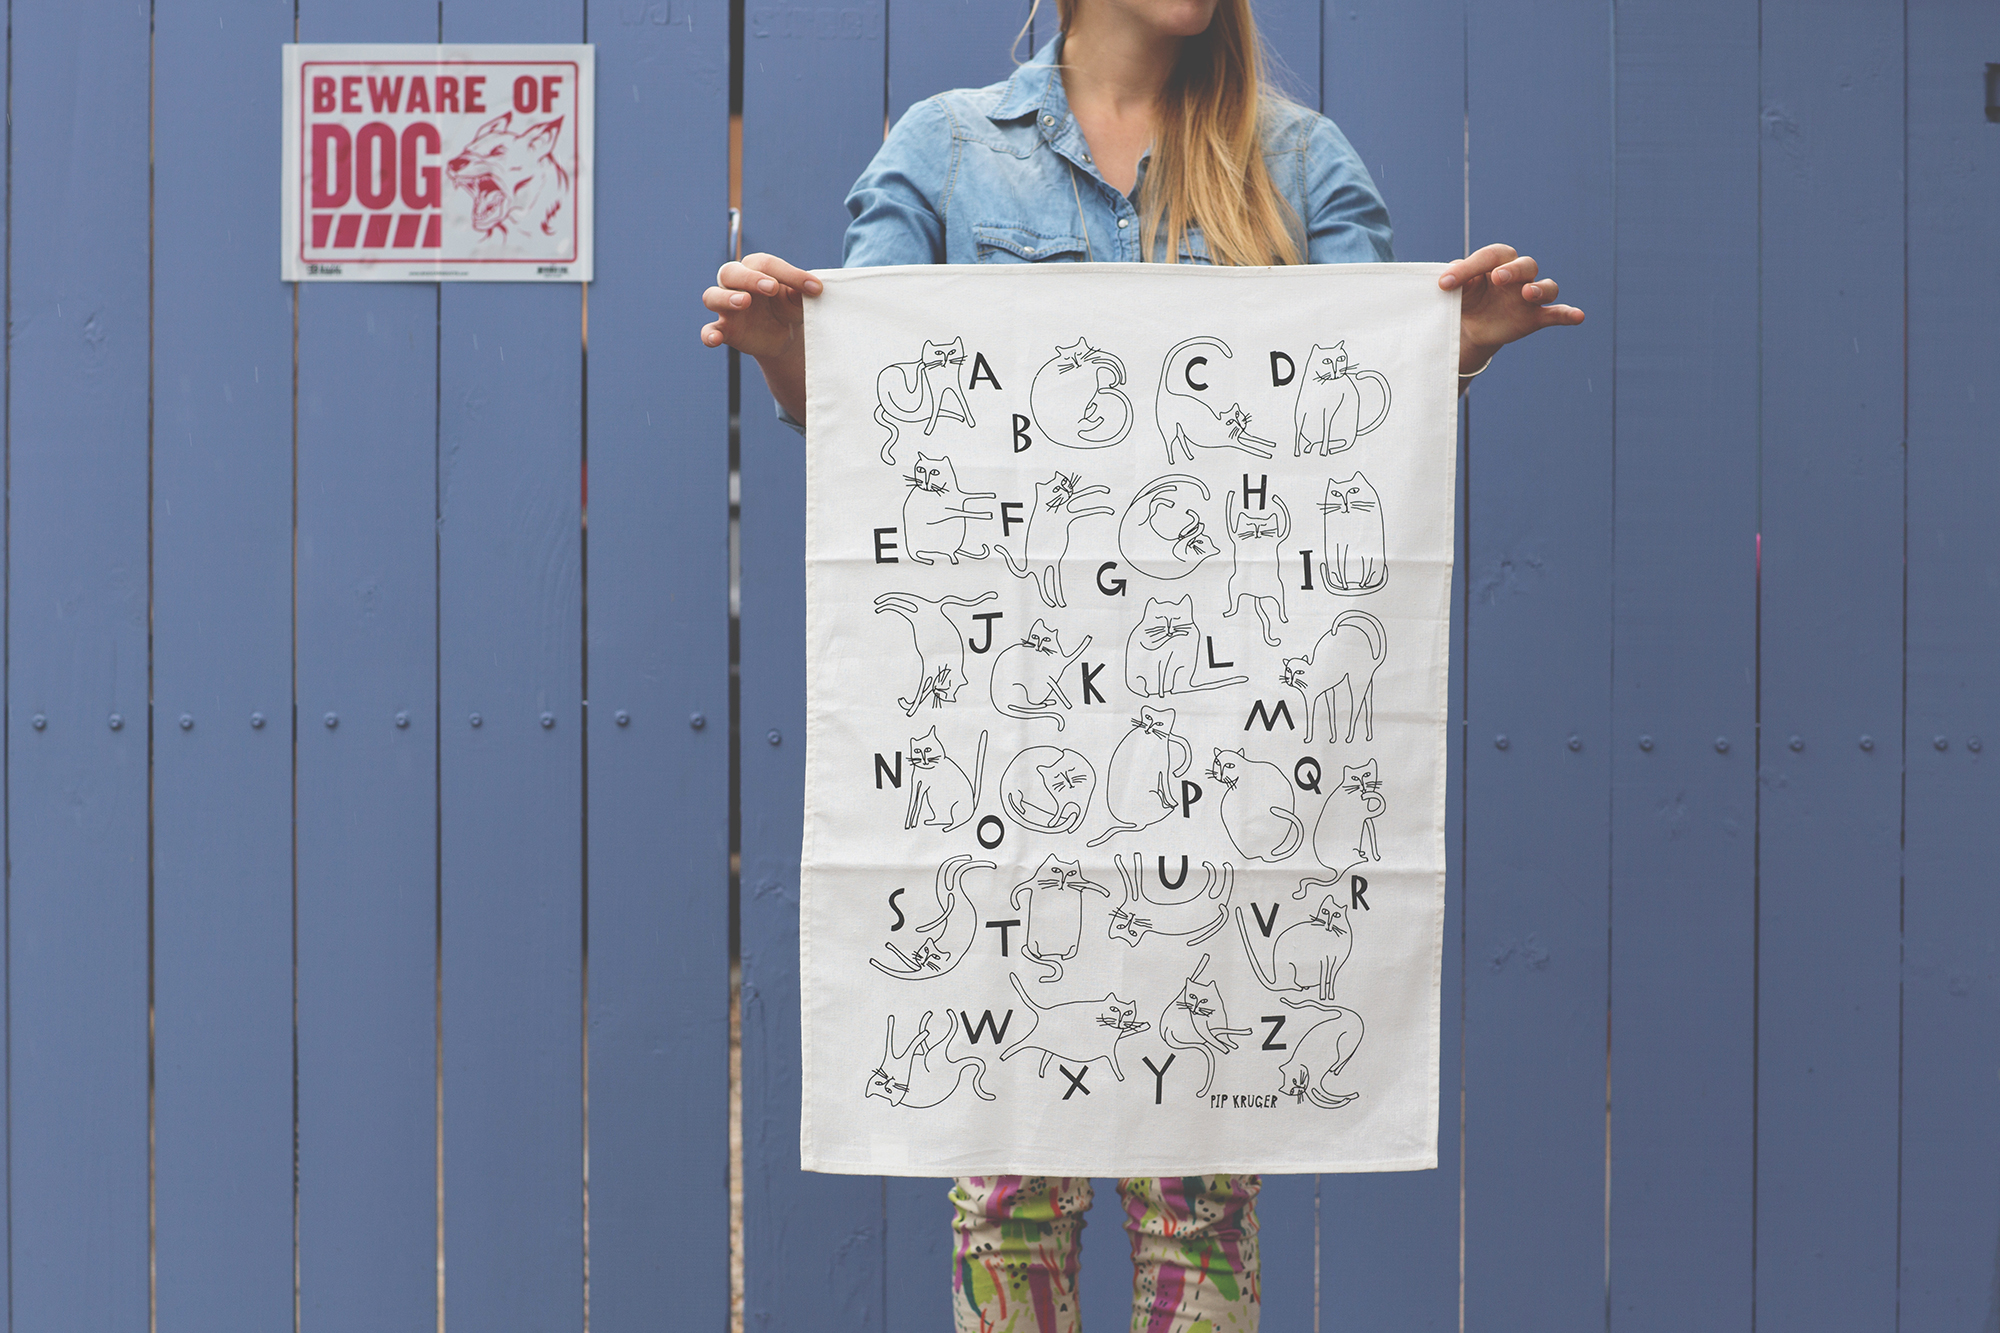 BEWARE OF
DOG
A
B
C
D
E
F
G
H
I
J
K
L
M
N
O
P
Q
R
S
T
U
V
W
X
Y
Z
PIP KRUGER